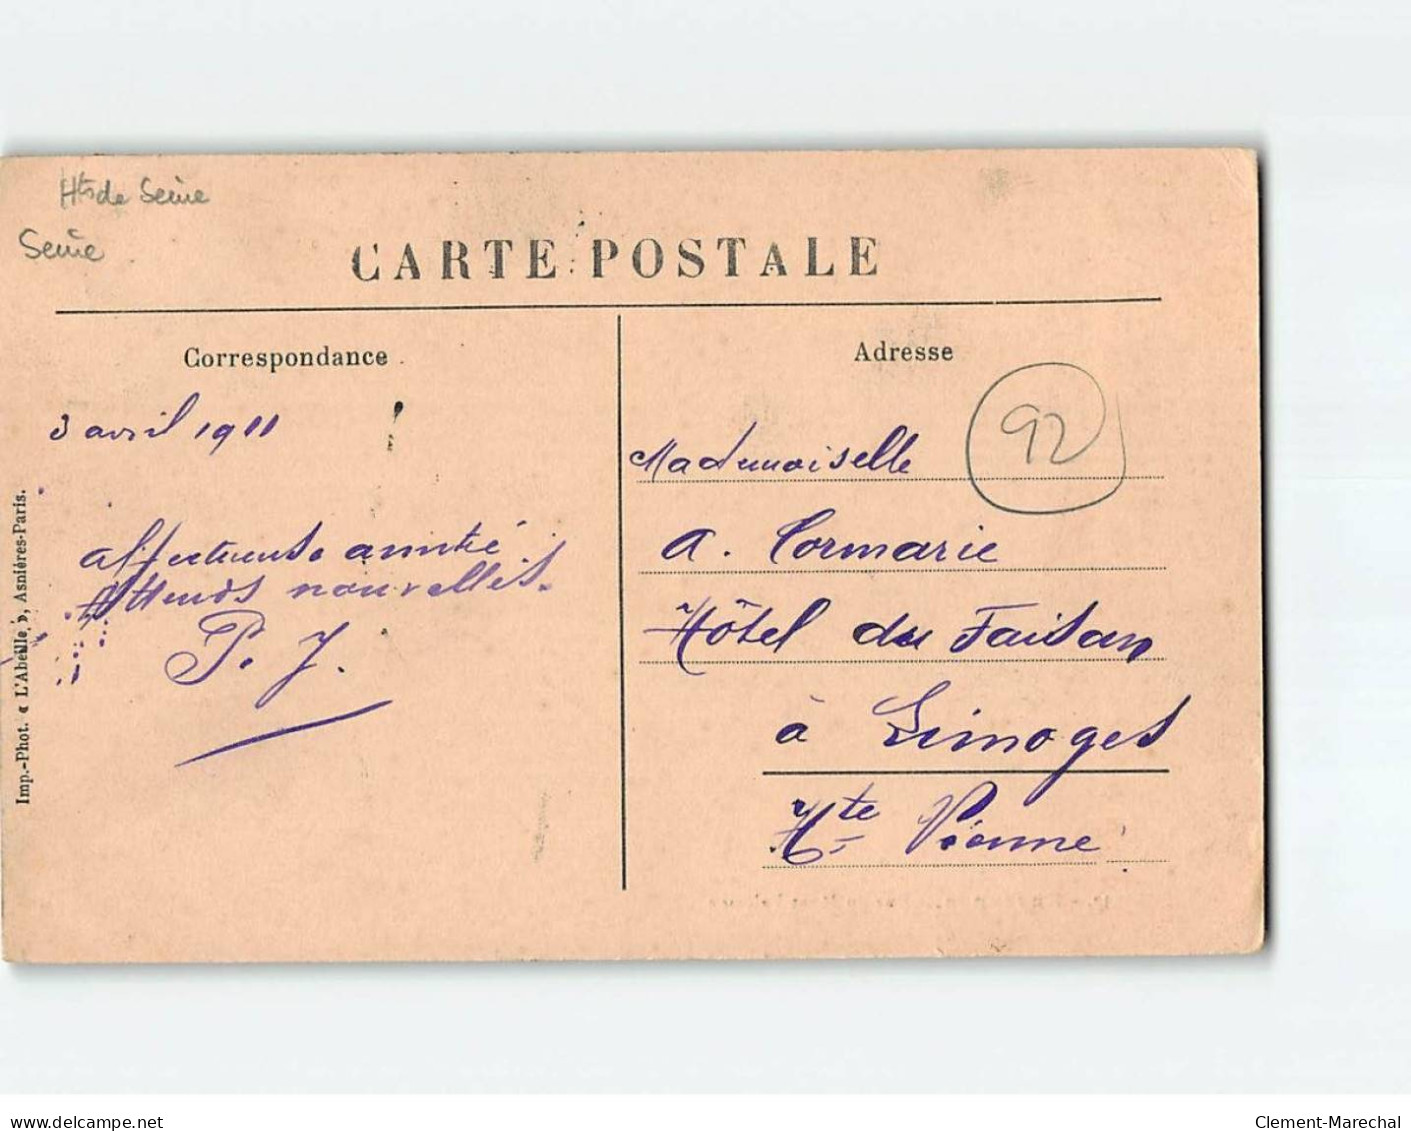 Hts de Seine
Seine
CARTE POSTALE
Correspondance
3 avril 1911
affectueuse amitié
Attends nouvelles.
P. J.
Imp.-Phot. « L'Abeille », Asnières-Paris.
Adresse
92
Mademoiselle
A. Cormarie
Hôtel du Faisan
à Limoges
Hte Vienne
www.delcampe.net
Clement-Marechal